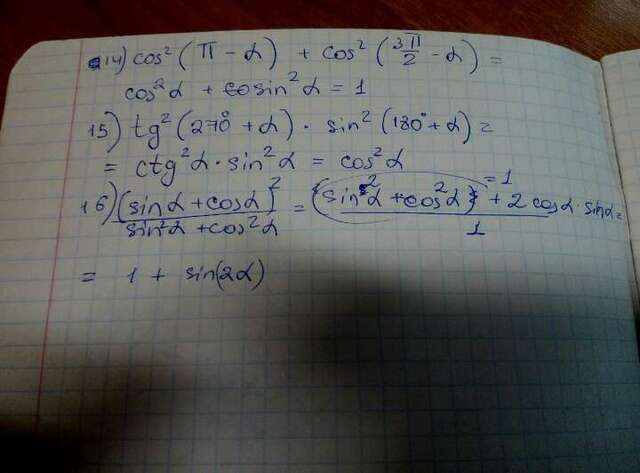 14) cos² (π - α) + cos² (3π/2 - α) =
cos²α + sin²α = 1
15) tg² (270° + α) · sin² (180° + α) =
= ctg²α · sin²α = cos²α
16) (sinα + cosα)² / (sin²α + cos²α) = (sin²α + cos²α) + 2 cosα · sinα / 1 =
= 1
= 1 + sin(2α)